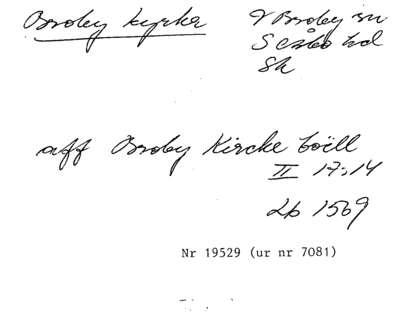 Broby kyrka V Broby sn
S Åsbo hd
Sk
aff Broby Kircke böill
II 17:14
Lb 1569
Nr 19529 (ur nr 7081)